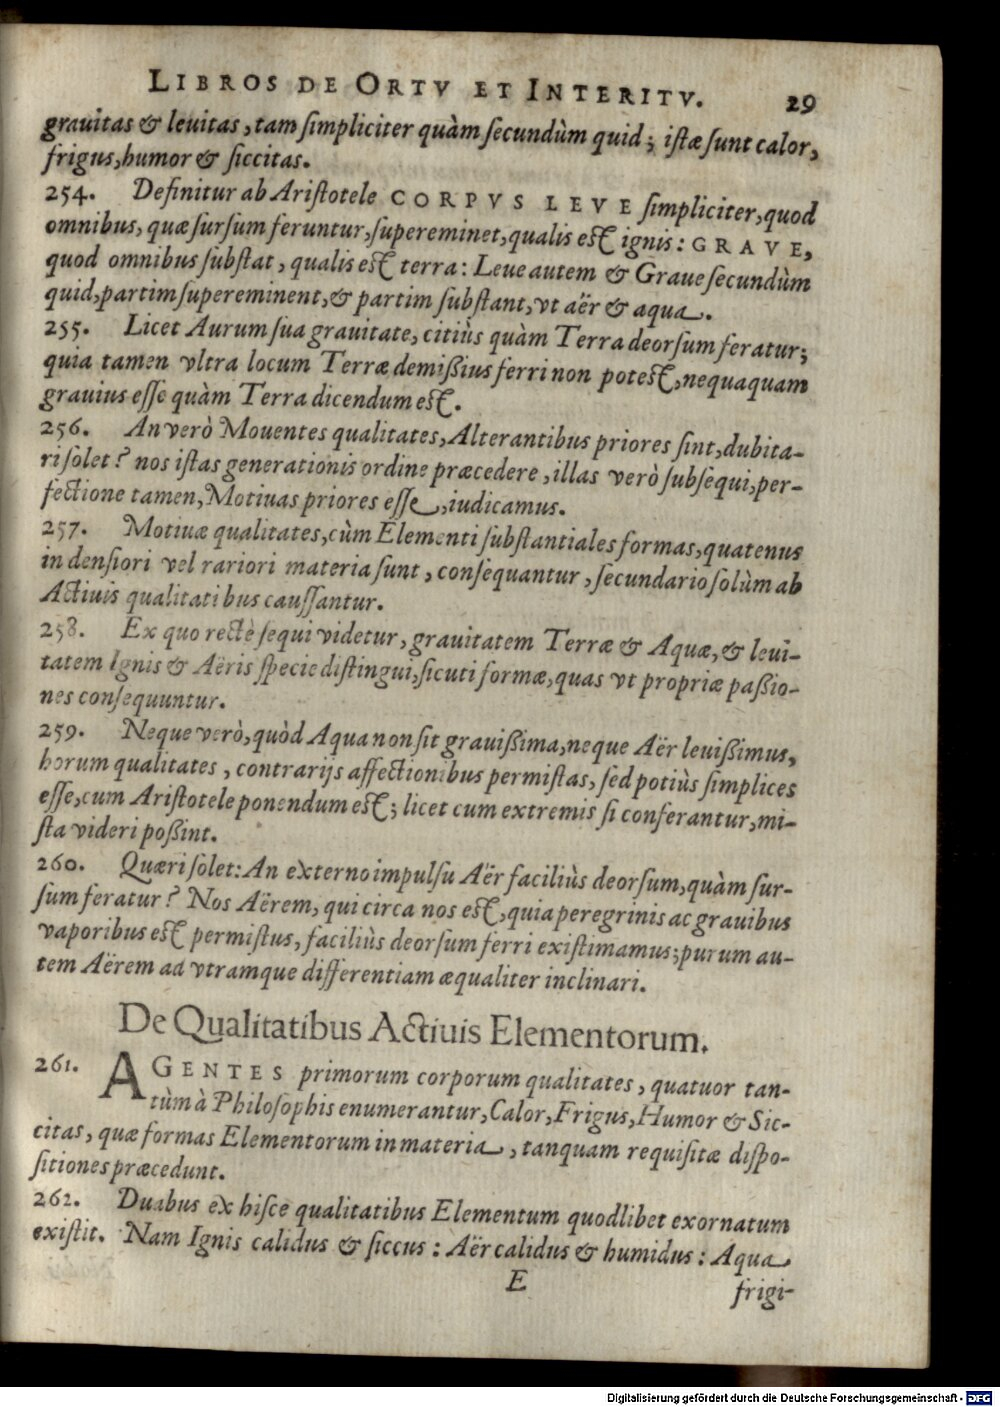 LIBROS DE ORTV ET INTERITV. 29
grauitas & leuitas, tam simpliciter quàm secundùm quid; istæ sunt calor,
frigus, humor & siccitas.
254. Definitur ab Aristotele CORPVS LEVE simpliciter, quod
omnibus, quæ sursum feruntur, supereminet, qualis est ignis: GRAVE,
quod omnibus substat, qualis est terra: Leue autem & Graue secundùm
quid, partim supereminent, & partim substant, vt aër & aqua.
255. Licet Aurum sua grauitate, citiùs quàm Terra deorsum feratur;
quia tamen vltra locum Terræ demißius ferri non potest, nequaquam
grauius esse quàm Terra dicendum est.
256. An verò Mouentes qualitates, Alterantibus priores sint, dubita-
ri solet? nos istas generationis ordine præcedere, illas verò subsequi, per-
fectione tamen, Motiuas priores esse, iudicamus.
257. Motiuæ qualitates, cùm Elementi substantiales formas, quatenus
in densiori vel rariori materia sunt, consequantur, secundario solùm ab
Actiuis qualitatibus caussantur.
258. Ex quo rectè sequi videtur, grauitatem Terræ & Aquæ, & leui-
tatem Ignis & Aëris specie distingui, sicuti formæ, quas vt propriæ paßio-
nes consequuntur.
259. Neque verò, quòd Aqua non sit grauißima, neque Aër leuißimus,
horum qualitates, contrarijs affectionibus permistas, sed potiùs simplices
esse, cum Aristotele ponendum est; licet cum extremis si conferantur, mi-
sta videri poßint.
260. Quæri solet: An externo impulsu Aër faciliùs deorsum, quàm sur-
sum feratur? Nos Aërem, qui circa nos est, quia peregrinis ac grauibus
vaporibus est permistus, faciliùs deorsum ferri existimamus; purum au-
tem Aërem ad vtramque differentiam æqualiter inclinari.
De Qualitatibus Actiuis Elementorum.
261. AGENTES primorum corporum qualitates, quatuor tan-
tùm à Philosophis enumerantur, Calor, Frigus, Humor & Sic-
citas, quæ formas Elementorum in materia, tanquam requisitæ dispo-
sitiones præcedunt.
262. Duabus ex hisce qualitatibus Elementum quodlibet exornatum
existit. Nam Ignis calidus & siccus: Aër calidus & humidus: Aqua
E frigi-
Digitalisierung gefördert durch die Deutsche Forschungsgemeinschaft - DFG